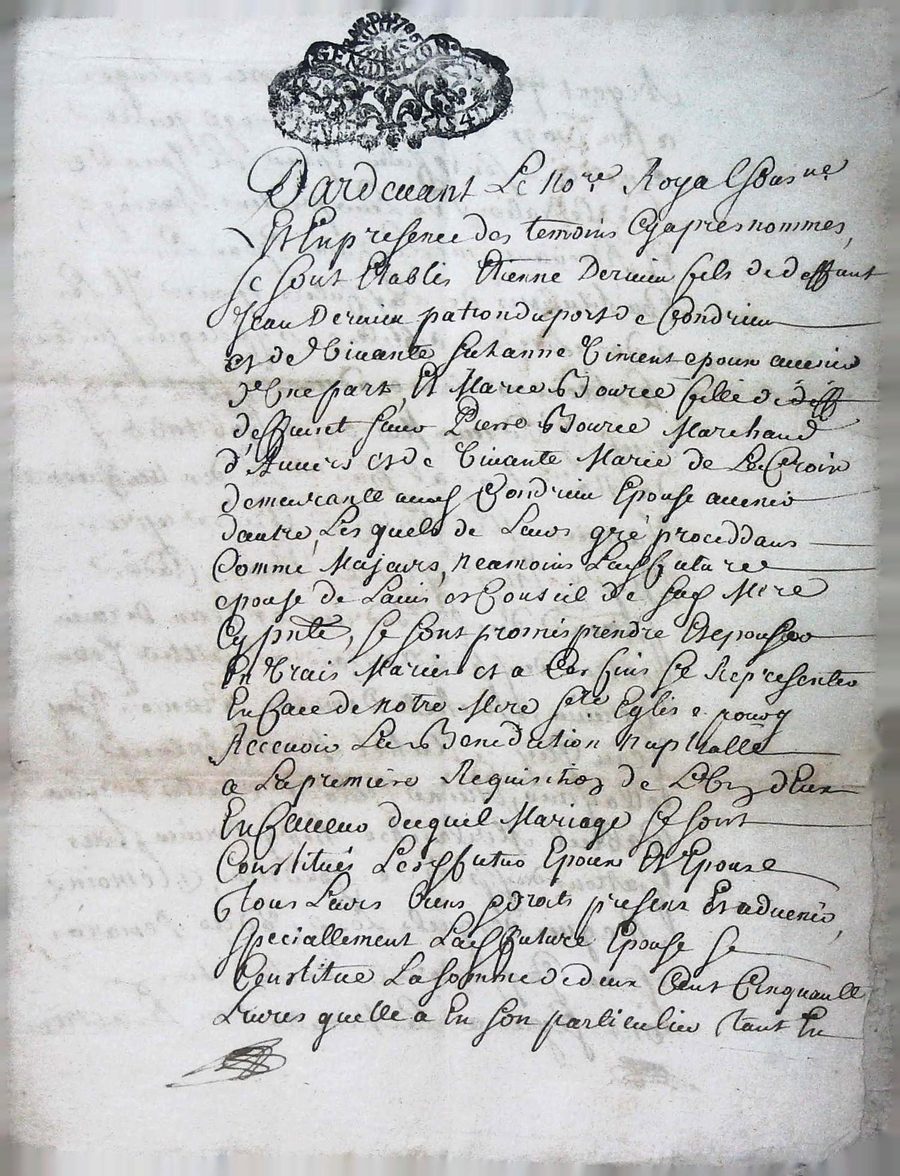 GEN DE LION
Pardevant Le no.re Royal sousne
Et En presence des temoins Cy apres nommes,
se sont Etablis Etienne Dervieu fils de deffunt
Jean Dervieu patron du port de Condrieu
et de Vivante Suzanne Viment epoux avenir
d'Une part, Et Marie Bourée fille de
deffunt sieur Pierre Bourée Marchand
d'Anvers et de Vivante Marie de La Croix
demeurante aud Condrieu Epouse avenir
d'autre, Les quels de Leurs gré proceddans
Comme Majeurs, neamoins Lad future
epouse de L'avis et Conseil de sad Mere
Cy pnte, se sont promis prendre Et epouser
En Vrais Mariés et a Ces fins se Representer
En face de notre Mere ste Eglise pour y
Recevoir La Benediction nuptialle
a La premiere Requisition de L'un d'Eux
En faveur duquel Mariage se sont
Constitués Lesd futurs Epoux Et Epouse
tous Leurs biens droits present Et advenir,
speciallement Lad future Epouse se
Constitue La somme de deux Cent Cinquante
Livres quelle a En son particulier tant En